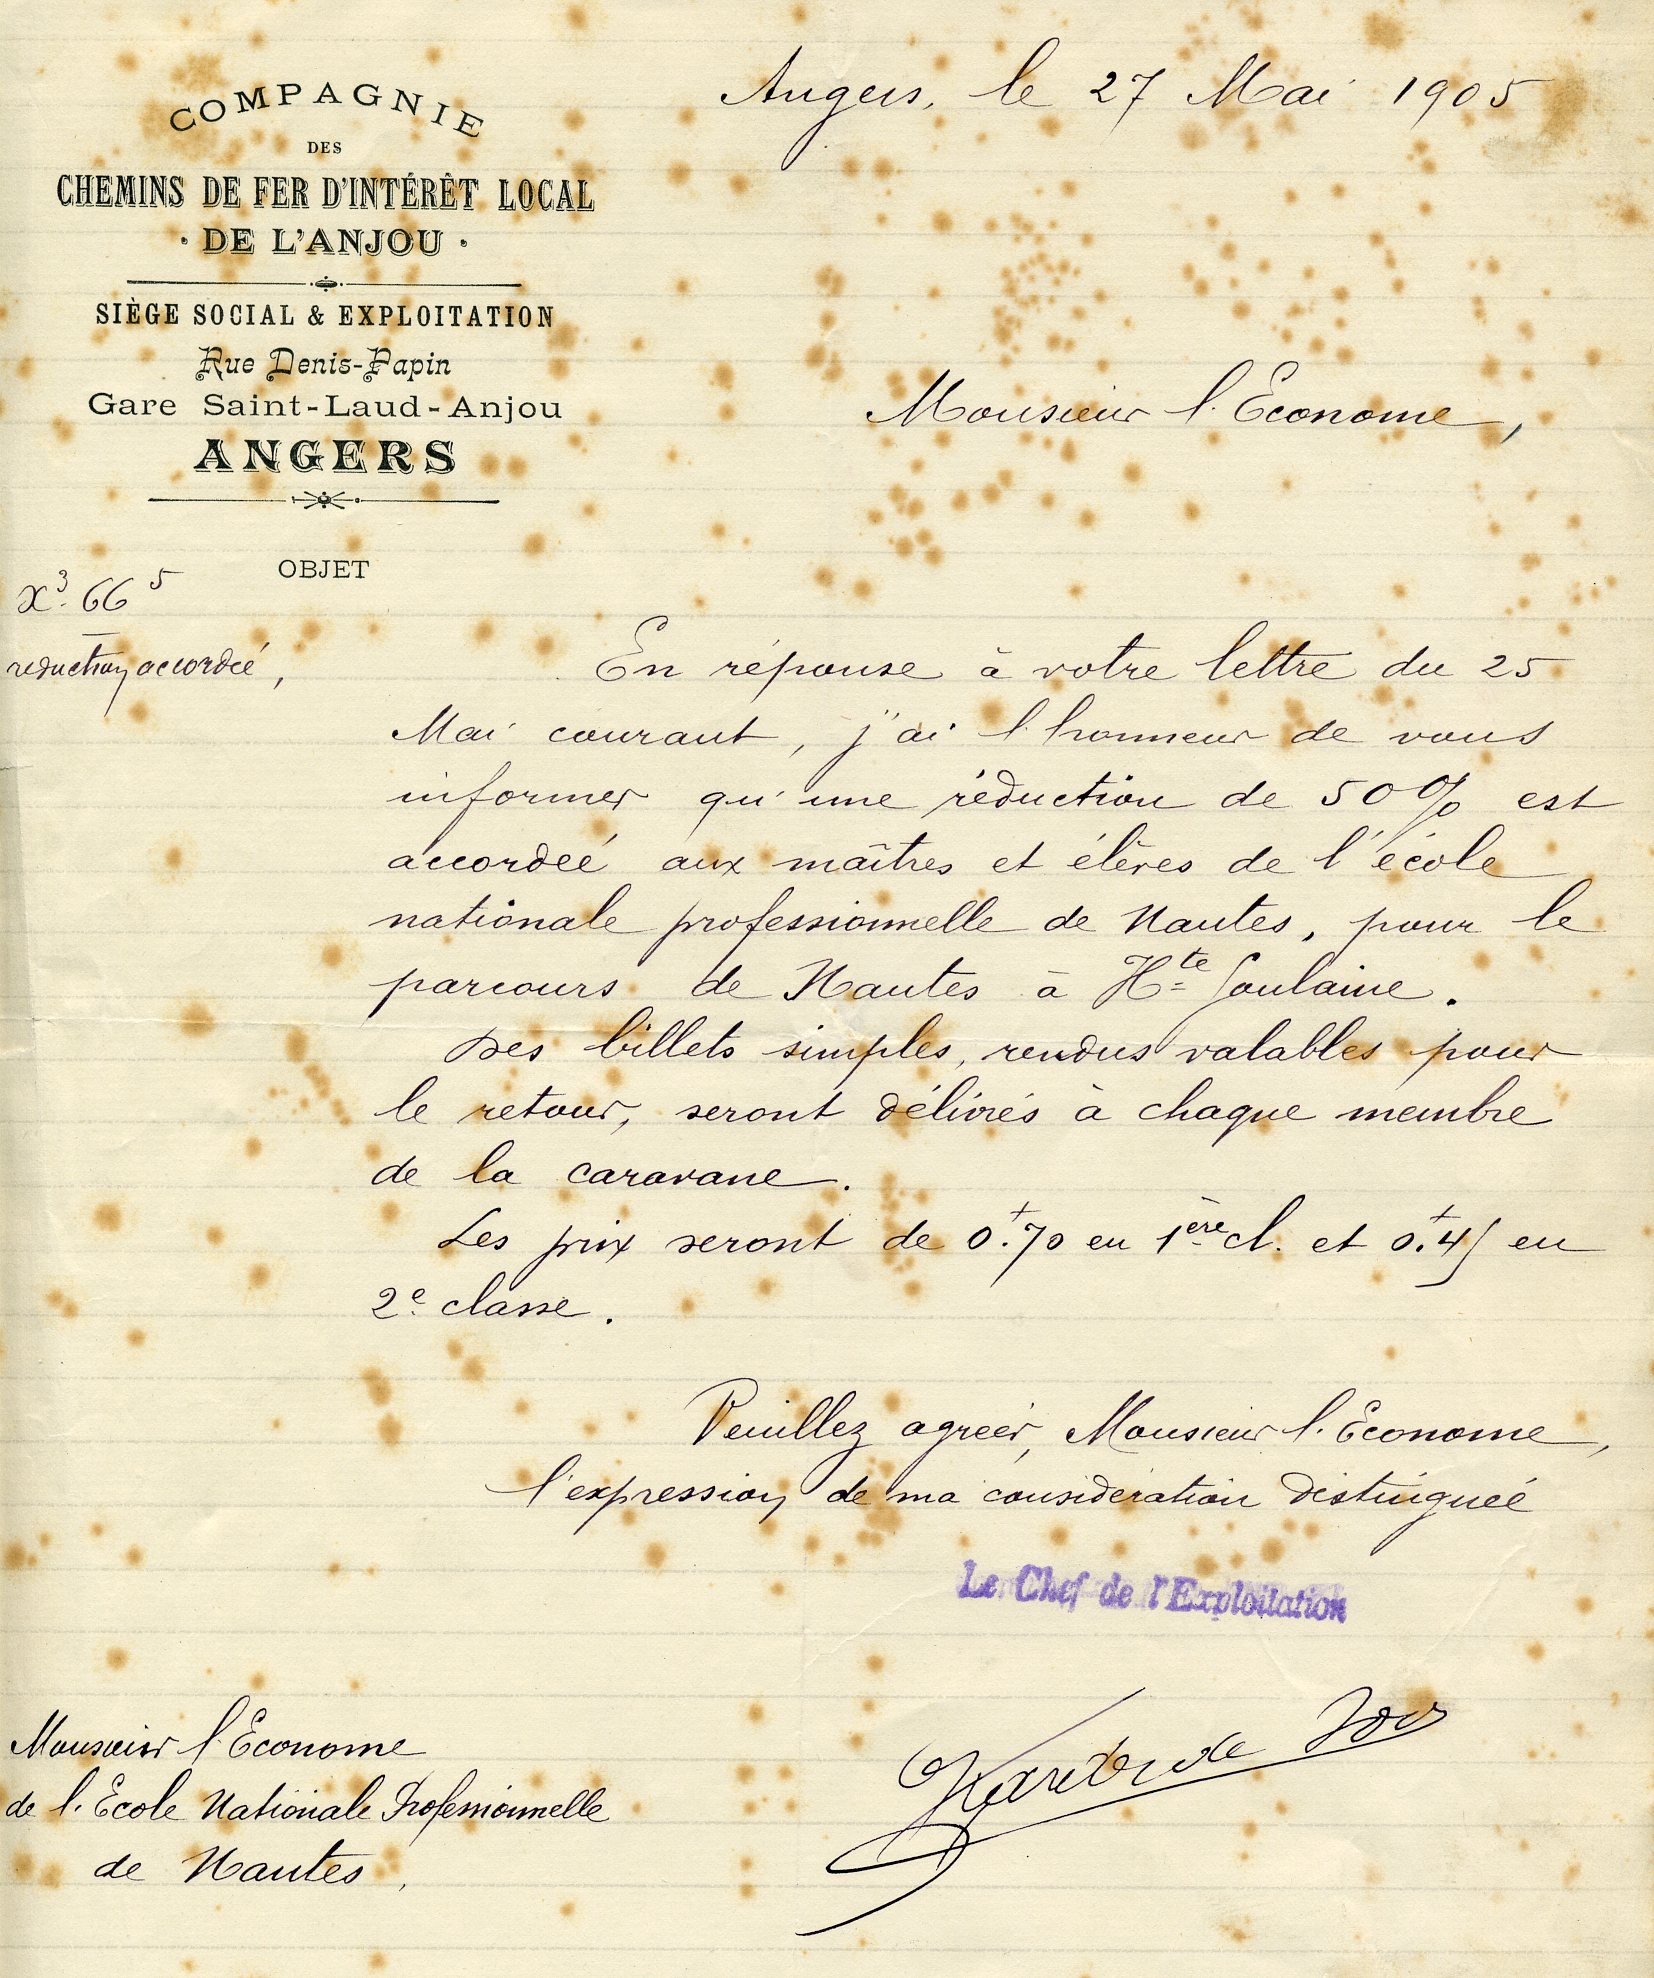 COMPAGNIE
DES
CHEMINS DE FER D'INTÉRÊT LOCAL
· DE L'ANJOU ·
SIÈGE SOCIAL & EXPLOITATION
Rue Denis-Papin
Gare Saint-Laud-Anjou
ANGERS
Angers, le 27 Mai 1905
Monsieur l'Econome,
OBJET
X³ 66⁵
réduction accordée,
En réponse à votre lettre du 25
Mai courant, j'ai l'honneur de vous
informer qu'une réduction de 50% est
accordée aux maîtres et élèves de l'école
nationale professionnelle de Nantes, pour le
parcours de Nantes à Hte Goulaine.
Des billets simples, rendus valables pour
le retour, seront délivrés à chaque membre
de la caravane.
Les prix seront de 0f.70 en 1ère cl. et 0f.45 en
2e classe.
Veuillez agréer, Monsieur l'Econome,
l'expression de ma considération distinguée
Le Chef de l'Exploitation
Monsieur l'Econome
de l'Ecole Nationale Professionnelle
de Nantes,